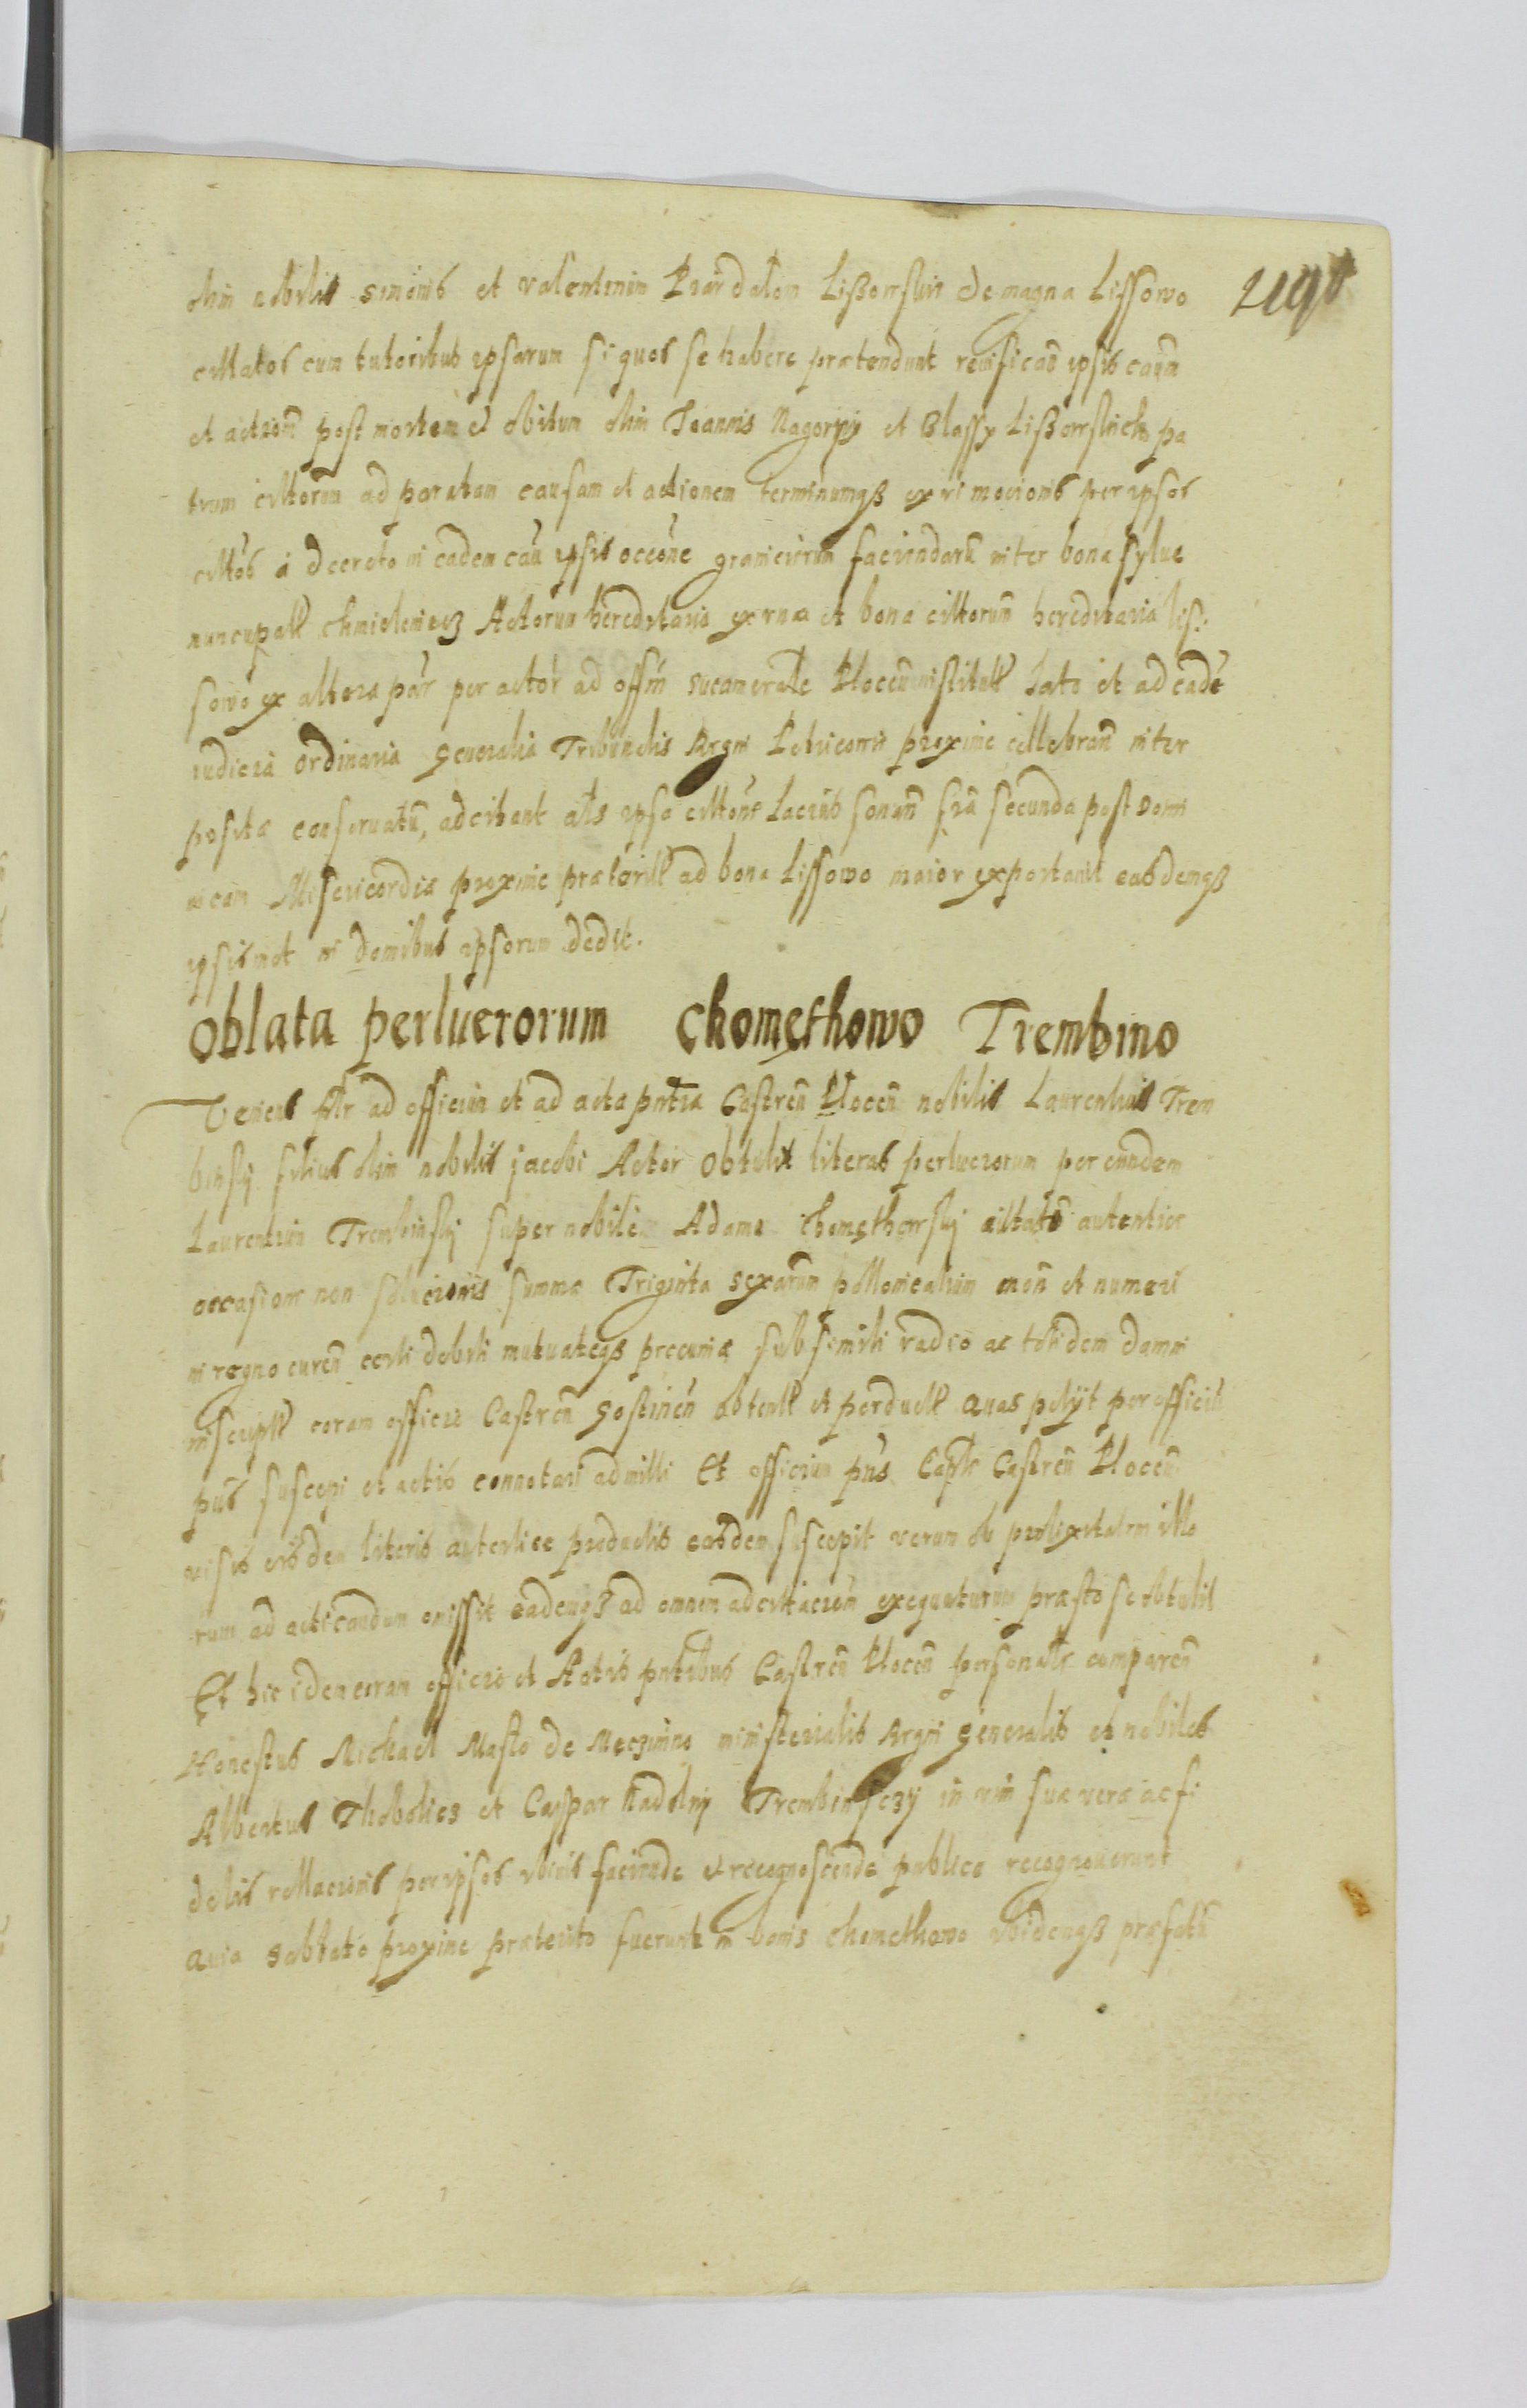 olim nobilis Simonis et Valentinum Lißowski de magna Lissowo
citatos cum tutoribus ipsarum si quos se habere prætendunt ipsis caũm
et actioñ post mortem et obitum olim Joannis Nagorny et Blassy Lißowskich pa
trum citatorũm ad paratam causam et actionem terminumqȝ ex vi mocionis per ipsos
cittos à decreto in eadem cau ipsis occõne granicierum faciendarũ inter bona sylue
nuncupatt Chmieleniecz Actorum hereditaria ex vna et bona cittorum hereditaria Lis
sowo ex altera par per actor ad offm sucamerale Plocen instituti lato et ad eade
iudicia ordinaria generalia Tribunalis Regni Petricoviæ proxime cellebrañ inter
posita conseruatũ, adcitant ipsa sonañ fria secunda post Domi
nicam Misericordia proxime præterit ad bona Lissowo maior exportauit easdemqȝ
ipsismet in domibus ipsorum dedit.
Oblata perlucrorum Chomethowo Trembino
Veniens ad officium et ad acta pntia Castreñ Ploceñ nobilis Laurentius Trem
binsky filius olim nobilis Jacobi Actor obtulit literas perlucrorum per eundem
Laurentium Trembinsky super nobilem Adamo Chomethowsky autentice
occasione non solucionis summæ Triginta sexarum pollonicalium moñ et numeri
in regno cureñ certi debiti mutuateqȝ pecuniæ sub simili vadio ac totidem damni
inscript coram officio Castreñ Gostineñ obtent et perduct quas petijt per officiũ
pñs suscepi et actis connotari admitti Et officium pñs Castreñ Ploceñ
visis eisdem literis autentice productis easdem suscepit verum ob prolixitatem illa
rum ad acticandum omissit eademqȝ ad omnem exequuturum præsto se obtulit
Et hic idem coram officio et Actis pntibus Castreñ Ploceñ personalr compareñ
Honestus Michael Masto de ministerialis Regni generalis et nobiles
Albertus et Caspar Nadolny Trembinsczy in vim suæ veræ ac fi
delis rellacionis per ipsos faciendæ et recognoscendæ publice recognouerunt
quia sabbato proxime præterito fuerunt in bonis Chomethowo ibidemqȝ præfatũ